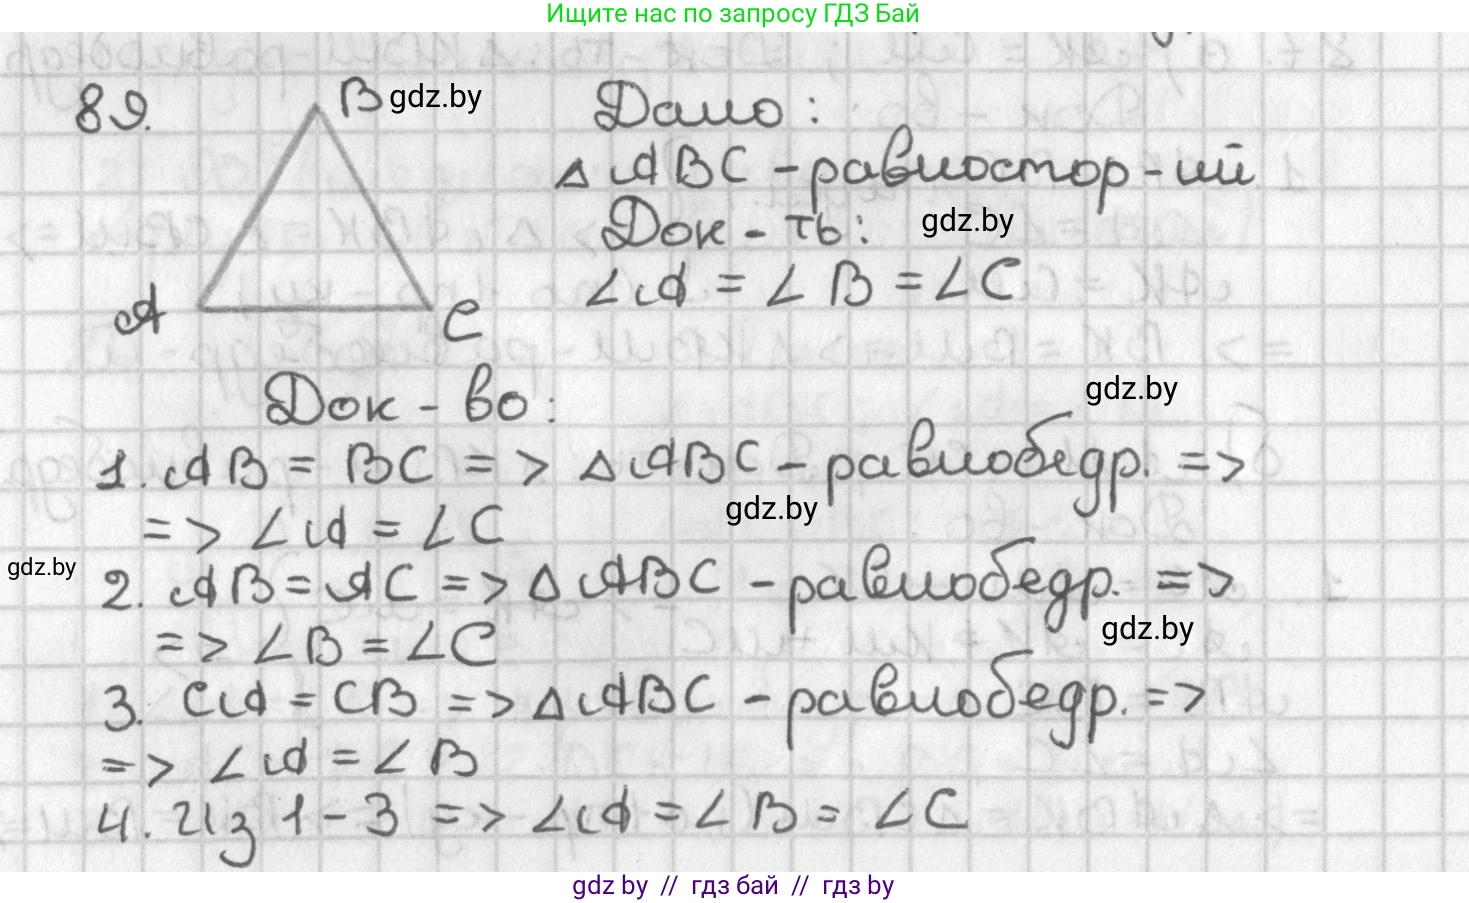 Ищите нас по запросу ГДЗ Бай
89.
B gdz.by
Дано:
△ABC - равностор-ий
Док-ть:
gdz.by
∠A = ∠B = ∠C
A
C
Док-во:
gdz.by
1. AB = BC => △ABC - равнобедр. =>
=> ∠A = ∠C
gdz.by
gdz.by
2. AB = AC => △ABC - равнобедр. =>
gdz.by
=> ∠B = ∠C
3. CA = CB => △ABC - равнобедр. =>
=> ∠A = ∠B
4. Из 1-3 => ∠A = ∠B = ∠C
gdz by // гдз бай // гдз by